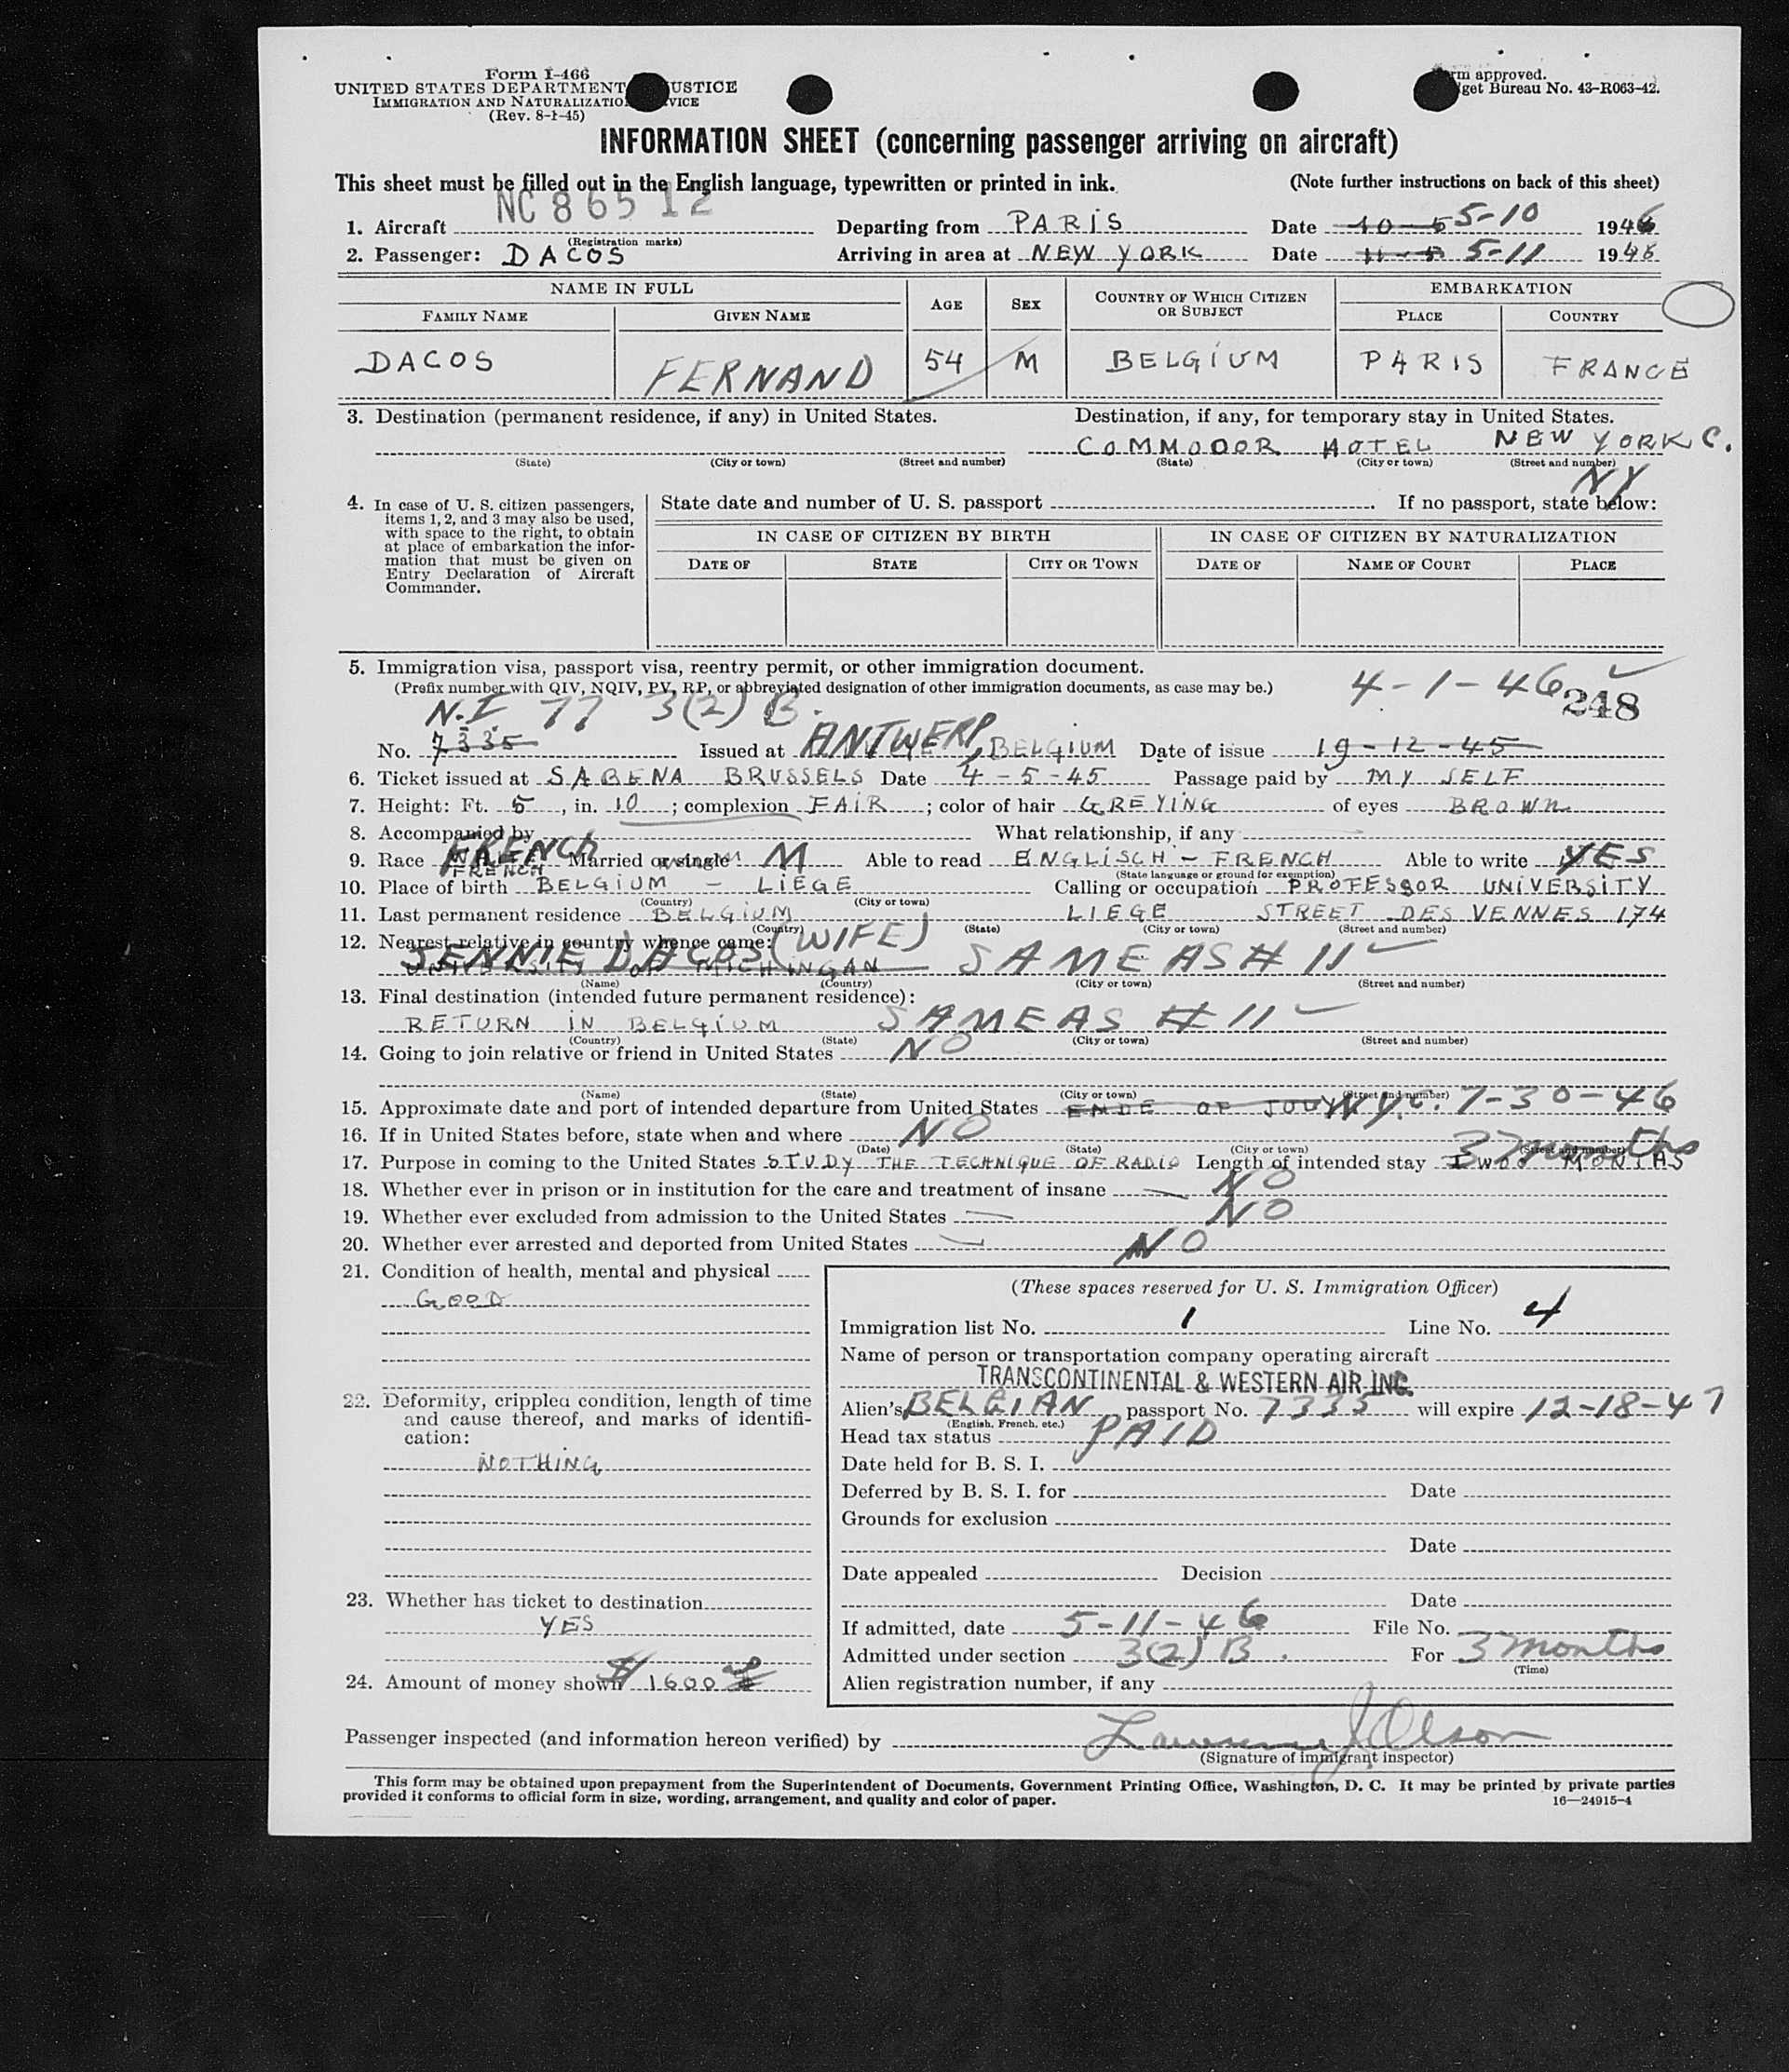 Form I-466
UNITED STATES DEPARTMENT JUSTICE
IMMIGRATION AND NATURALIZATION SERVICE
(Rev. 8-1-45)
Form approved.
Budget Bureau No. 43-R063-42.
INFORMATION SHEET (concerning passenger arriving on aircraft)
This sheet must be filled out in the English language, typewritten or printed in ink. (Note further instructions on back of this sheet)
NC 86512
1. Aircraft Departing from PARIS Date 10-5 5-10 1946
(Registration marks)
2. Passenger: DACOS Arriving in area at NEW YORK Date 11-5 5-11 1946
NAME IN FULL AGE SEX COUNTRY OF WHICH CITIZEN OR SUBJECT EMBARKATION
FAMILY NAME GIVEN NAME PLACE COUNTRY
DACOS FERNAND 54 M BELGIUM PARIS FRANCE
3. Destination (permanent residence, if any) in United States. Destination, if any, for temporary stay in United States.
COMMODOR HOTEL NEW YORK C.
(State) (City or town) (Street and number) (State) (City or town) (Street and number)
NY
4. In case of U. S. citizen passengers, items 1, 2, and 3 may also be used, with space to the right, to obtain at place of embarkation the information that must be given on Entry Declaration of Aircraft Commander.
State date and number of U. S. passport . If no passport, state below:
IN CASE OF CITIZEN BY BIRTH IN CASE OF CITIZEN BY NATURALIZATION
DATE OF STATE CITY OR TOWN DATE OF NAME OF COURT PLACE
5. Immigration visa, passport visa, reentry permit, or other immigration document.
(Prefix number with QIV, NQIV, PV, RP, or abbreviated designation of other immigration documents, as case may be.) 4-1-46 248
N.I 77 3(2) B.
No. 7335 Issued at ANTWERP, BELGIUM Date of issue 19-12-45
6. Ticket issued at SABENA BRUSSELS Date 4-5-45 Passage paid by MY SELF
7. Height: Ft. 5, in. 10; complexion FAIR; color of hair GREYING of eyes BROWN
8. Accompanied by What relationship, if any
9. Race FRENCH Married or single M Able to read ENGLISCH - FRENCH Able to write YES
FRENCH (State language or ground for exemption)
10. Place of birth BELGIUM - LIEGE Calling or occupation PROFESSOR UNIVERSITY
(Country) (City or town)
11. Last permanent residence BELGIUM LIEGE STREET DES VENNES 174
(Country) (State) (City or town) (Street and number)
12. Nearest relative in country whence came: (WIFE)
JENNIE DACOS UNIVERSITY OF MICHINGAN SAME AS # 11
(Name) (Country) (City or town) (Street and number)
13. Final destination (intended future permanent residence):
RETURN IN BELGIUM SAME AS # 11
(Country) (State) (City or town) (Street and number)
14. Going to join relative or friend in United States NO
(Name) (State) (City or town) (Street and number)
15. Approximate date and port of intended departure from United States ENDE OF JOULY N.Y.C. 7-30-46
16. If in United States before, state when and where NO
(Date) (State) (City or town) (Street and number)
3 months
17. Purpose in coming to the United States STUDY THE TECHNIQUE OF RADIO Length of intended stay TWOO MONTHS
18. Whether ever in prison or in institution for the care and treatment of insane NO
19. Whether ever excluded from admission to the United States NO
20. Whether ever arrested and deported from United States NO
21. Condition of health, mental and physical
GOOD
22. Deformity, crippled condition, length of time and cause thereof, and marks of identification:
NOTHING
23. Whether has ticket to destination
YES
24. Amount of money shown $ 1600
(These spaces reserved for U. S. Immigration Officer)
Immigration list No. 1 Line No. 4
Name of person or transportation company operating aircraft
TRANSCONTINENTAL & WESTERN AIR INC.
Alien's BELGIAN passport No. 7335 will expire 12-18-47
(English, French, etc.)
Head tax status PAID
Date held for B. S. I.
Deferred by B. S. I. for Date
Grounds for exclusion
Date
Date appealed Decision
Date
If admitted, date 5-11-46 File No.
Admitted under section 3(2) B. For 3 months
(Time)
Alien registration number, if any
Passenger inspected (and information hereon verified) by Lawrence J Olson
(Signature of immigrant inspector)
This form may be obtained upon prepayment from the Superintendent of Documents, Government Printing Office, Washington, D. C. It may be printed by private parties
provided it conforms to official form in size, wording, arrangement, and quality and color of paper. 16—24915-4